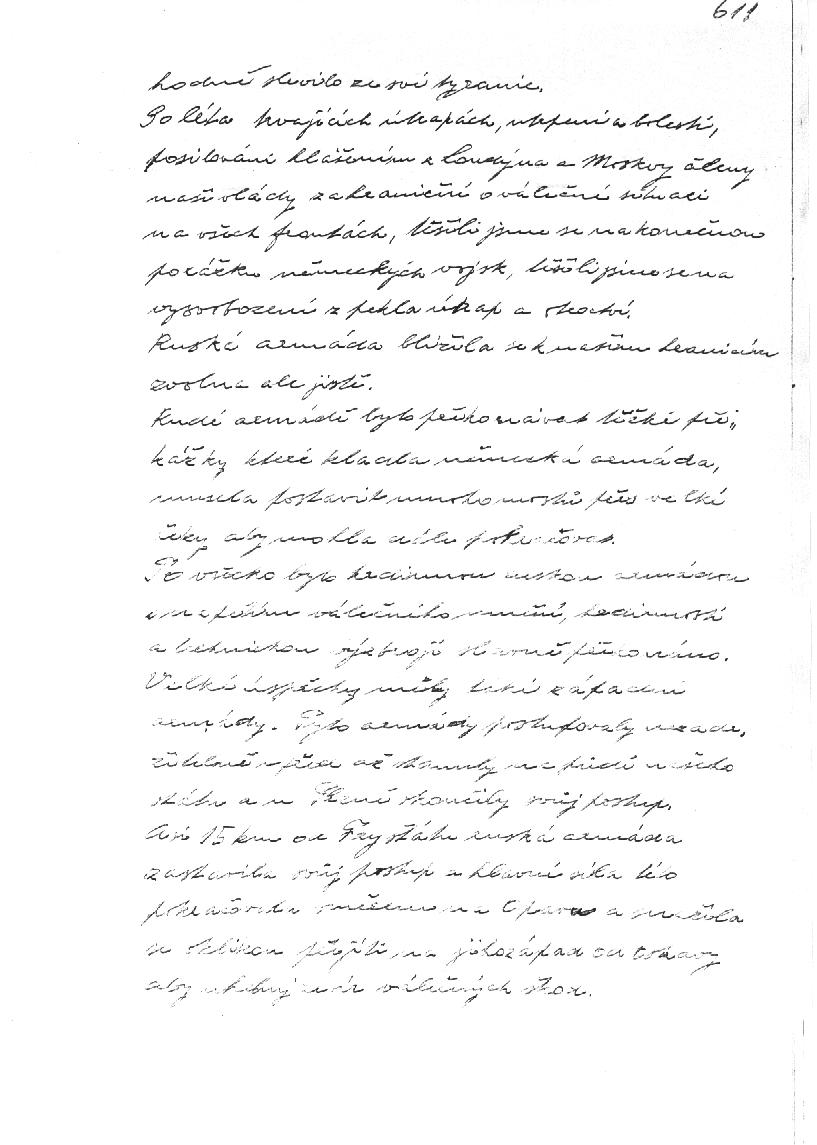 611
hodně slevilo ze své tyranie.
Po léta trvajících útrapách, utrpení a bolesti,
posilováni hlášením z Londýna a Moskvy členy
naší vlády zahraniční o válečné situaci
na všech frontách, těšili jsme se na konečnou
porážku německých vojsk, těšili jsme se na
vysvobození z pekla útrap a otroctví.
Ruská armáda blížila se k našim hranicím
zvolna ale jistě.
Rudé armádě bylo překonávat těžké pře„
kážky které kladla německá armáda,
musela postavit mnoho mostů přes velké
řeky aby mohla dále pokračovat.
To všecko bylo hrdinnou ruskou armádou
válečného umění, hrdinností
a technickou výzbrojí slavně překonáno.
Velké úspěchy měly také západní
armády. Tyto armády postupovaly nezadr,
žitelně vpřed až stanuly na půdě našeho
státu a u Plzně skončily svůj postup.
Asi 15 km od Fryštátu ruská armáda
zastavila svůj postup a hlavní síla této
pokračovala směrem na Opavu a snažila
se oklikou přejíti na jihozápad od Ostravy
aby válečných škod.